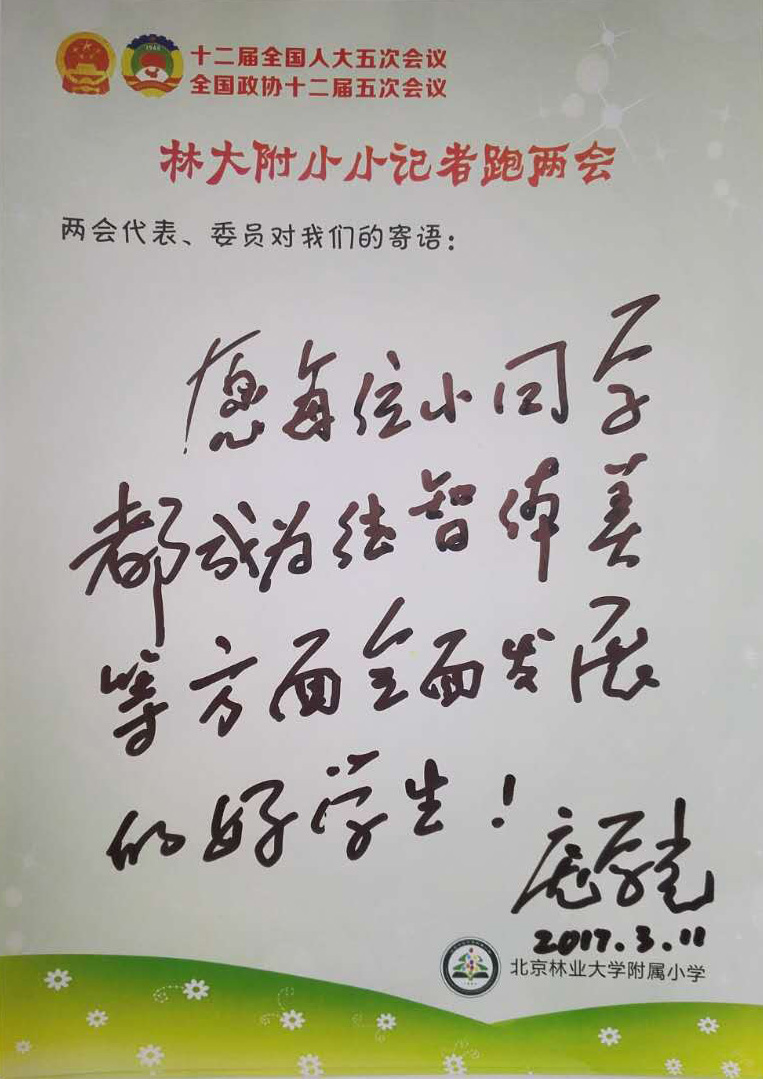 十二届全国人大五次会议
全国政协十二届五次会议
林大附小小记者跑两会
两会代表、委员对我们的寄语：
愿每位小同学
都成为德智体美
等方面全面发展
的好学生！
2017.3.11
北京林业大学附属小学